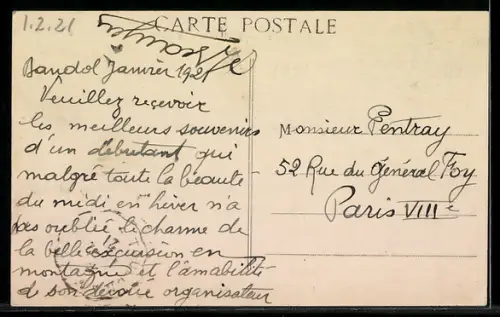 1.2.21
CARTE POSTALE
Bandol Janvier 1921
Veuillez reçevoir
les meilleurs souvenirs
d'un débutant qui
malgré toute la beauté
du midi en hiver n'a
pas oublié le charme de
la belle excursion en
montagne et l'amabilité
de son dévoué organisateur
Monsieur Pentray
52 Rue du Général Foy
Paris VIIIe